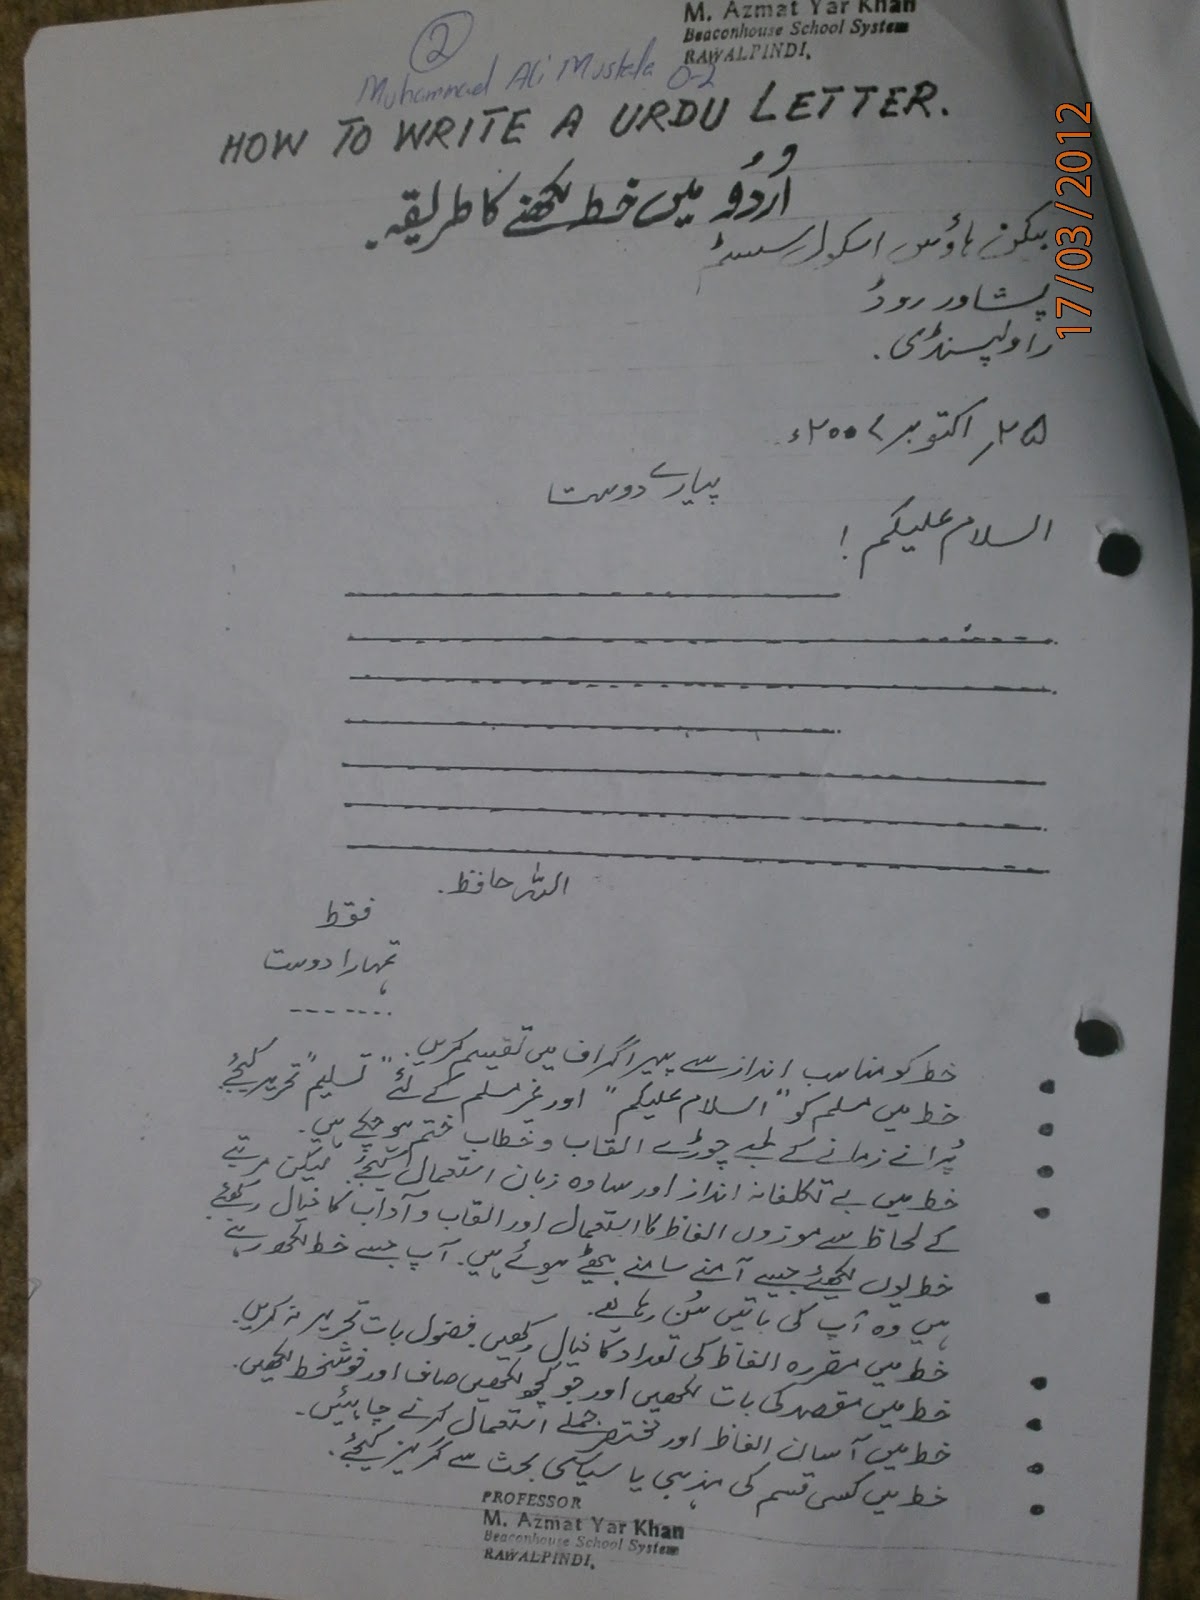 M. Azmat Yar Khan
Beaconhouse School System
RAWALPINDI.
2
Muhammad Ali Mustafa O-2
HOW TO WRITE A URDU LETTER.
17/03/2012
اُردُو میں خط لکھنے کا طریقہ.
بیکن ہاؤس اسکول سسٹم
پشاور روڈ
راولپنڈی.
۲۵؍ اکتوبر ۲۰۰۷ء
پیارے دوست
السلام علیکم !
اللہ حافظ.
فقط
تمہارا دوست
خط کو مناسب انداز سے پیراگراف میں تقسیم کریں.
خط میں مسلم کو "السلام علیکم" اور غیر مسلم کے لئے "تسلیم" تحریر کیجئے
پُرانے زمانے کے لمبے چوڑے القاب و خطاب ختم ہو چکے ہیں.
خط میں بے تکلفانہ انداز اور سادہ زبان استعمال کیجئے لیکن مرتبے
کے لحاظ سے موزوں الفاظ کا استعمال اور القاب و آداب کا خیال رکھئے
خط یوں لکھئے جیسے آمنے سامنے بیٹھے ہوئے ہیں. آپ جسے خط لکھ رہے
ہیں وہ آپ کی باتیں سُن رہا ہے.
خط میں مقررہ الفاظ کی تعداد کا خیال رکھیں. فضول بات تحریر نہ کریں.
خط میں مقصد کی بات لکھیں اور جو کچھ لکھیں صاف اور خوشخط لکھیں.
خط میں آسان الفاظ اور مختصر جملے استعمال کرنے چاہئیں.
خط میں کسی قسم کی مذہبی یا سیاسی بحث سے گریز کیجئے.
PROFESSOR
M. Azmat Yar Khan
Beaconhouse School System
RAWALPINDI.